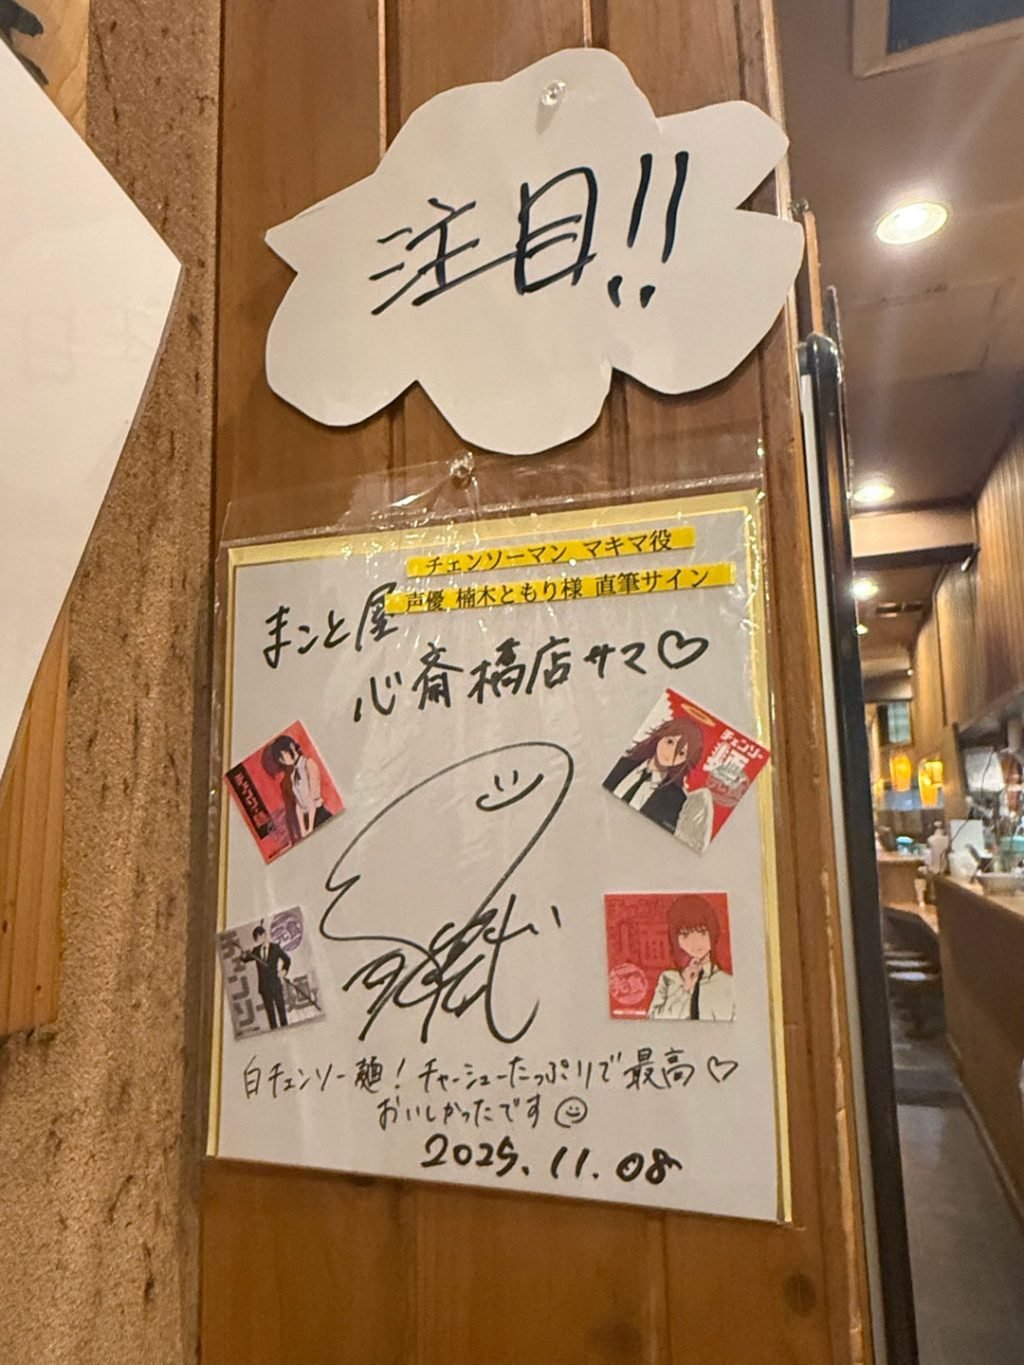 注目!!
チェンソーマン マキマ役
声優 楠木ともり様 直筆サイン
まこと屋
心斎橋店サマ♡
チェンソー
麺
完食
チェンソー麺
完食
白チェンソー麺！チャーシューたっぷりで最高♡
おいしかったです
2025.11.08